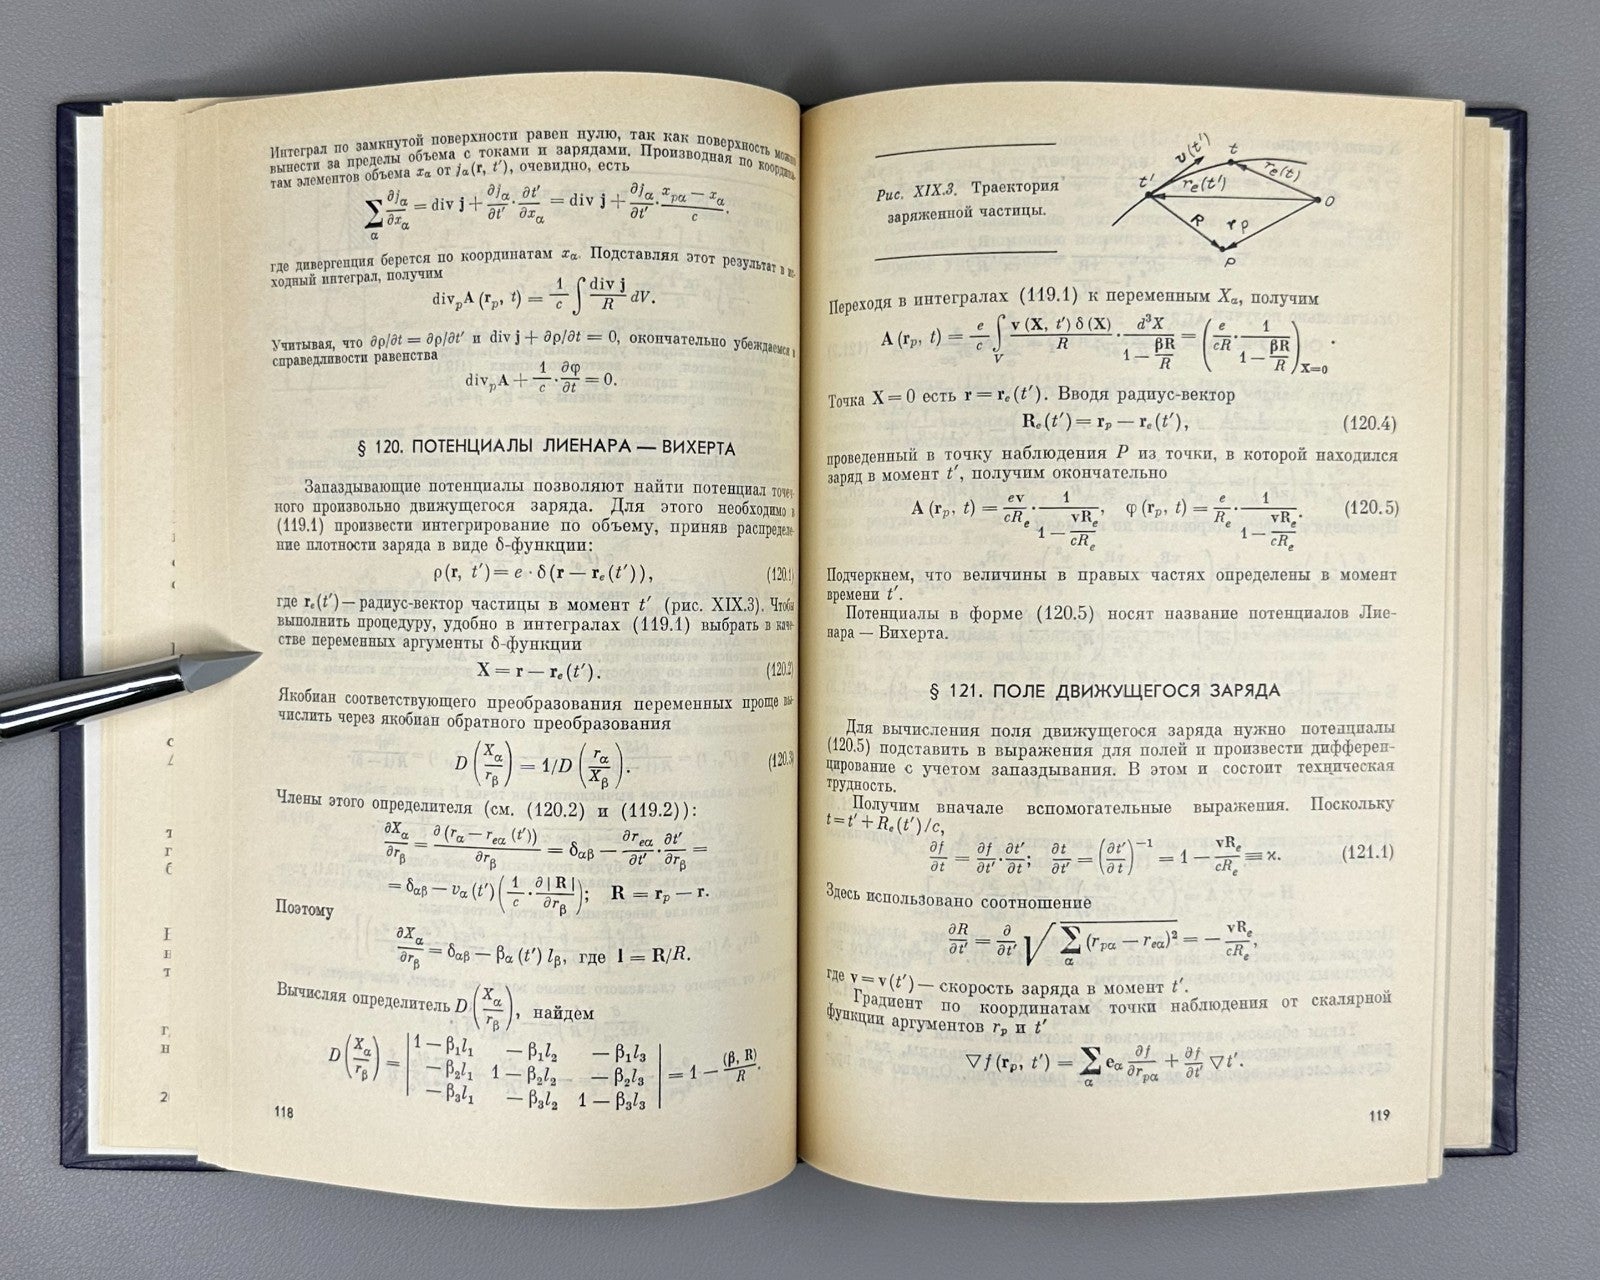 Интеграл по замкнутой поверхности равен нулю, так как поверхность можно
вынести за пределы объема с токами и зарядами. Производная по координа-
там элементов объема xα от jα(r, t′), очевидно, есть
∑α ∂jα/∂xα = div j + ∂jα/∂t′ · ∂t′/∂xα = div j + ∂jα/∂t′ · (xpα — xα)/c.
где дивергенция берется по координатам xα. Подставляя этот результат в ис-
ходный интеграл, получим
divpA (rp, t) = 1/c ∫ div j/R dV.
Учитывая, что ∂ρ/∂t = ∂ρ/∂t′ и div j + ∂ρ/∂t = 0, окончательно убеждаемся в
справедливости равенства
divpA + 1/c · ∂φ/∂t = 0.
§ 120. ПОТЕНЦИАЛЫ ЛИЕНАРА — ВИХЕРТА
Запаздывающие потенциалы позволяют найти потенциал точеч-
ного произвольно движущегося заряда. Для этого необходимо в
(119.1) произвести интегрирование по объему, приняв распределе-
ние плотности заряда в виде δ-функции:
ρ(r, t′) = e · δ(r — re(t′)), (120.1)
где re(t′) — радиус-вектор частицы в момент t′ (рис. XIX.3). Чтобы
выполнить процедуру, удобно в интегралах (119.1) выбрать в каче-
стве переменных аргументы δ-функции
X = r — re(t′). (120.2)
Якобиан соответствующего преобразования переменных проще вы-
числить через якобиан обратного преобразования
D(Xα/rβ) = 1/D(rα/Xβ). (120.3)
Члены этого определителя (см. (120.2) и (119.2)):
∂Xα/∂rβ = ∂(rα — reα(t′))/∂rβ = δαβ — ∂reα/∂t′ · ∂t′/∂rβ =
= δαβ — vα(t′)(1/c · ∂|R|/∂rβ); R = rp — r.
Поэтому
∂Xα/∂rβ = δαβ — βα(t′) lβ, где l = R/R.
Вычисляя определитель D(Xα/rβ), найдем
D(Xα/rβ) = | 1 — β1l1 — β1l2 — β1l3
— β2l1 1 — β2l2 — β2l3
— β3l1 — β3l2 1 — β3l3 | = 1 — (β, R)/R.
118
Рис. XIX.3. Траектория
заряженной частицы.
v(t′)
t
re(t)
t′
re(t′)
O
R
rp
P
Переходя в интегралах (119.1) к переменным Xα, получим
A (rp, t) = e/c ∫V v(X, t′) δ(X)/R · d³X/(1 — βR/R) = (e/cR · 1/(1 — βR/R))X=0.
Точка X = 0 есть r = re(t′). Вводя радиус-вектор
Re(t′) = rp — re(t′), (120.4)
проведенный в точку наблюдения P из точки, в которой находился
заряд в момент t′, получим окончательно
A (rp, t) = ev/cRe · 1/(1 — vRe/cRe), φ(rp, t) = e/Re · 1/(1 — vRe/cRe). (120.5)
Подчеркнем, что величины в правых частях определены в момент
времени t′.
Потенциалы в форме (120.5) носят название потенциалов Лие-
нара — Вихерта.
§ 121. ПОЛЕ ДВИЖУЩЕГОСЯ ЗАРЯДА
Для вычисления поля движущегося заряда нужно потенциалы
(120.5) подставить в выражения для полей и произвести дифферен-
цирование с учетом запаздывания. В этом и состоит техническая
трудность.
Получим вначале вспомогательные выражения. Поскольку
t = t′ + Re(t′)/c,
∂f/∂t = ∂f/∂t′ · ∂t′/∂t; ∂t/∂t′ = (∂t′/∂t)⁻¹ = 1 — vRe/cRe ≡ ϰ. (121.1)
Здесь использовано соотношение
∂R/∂t′ = ∂/∂t′ √∑α (rpα — reα)² = — vRe/cRe,
где v = v(t′) — скорость заряда в момент t′.
Градиент по координатам точки наблюдения от скалярной
функции аргументов rp и t′
∇f(rp, t′) = ∑α eα ∂f/∂rpα + ∂f/∂t′ ∇t′.
119